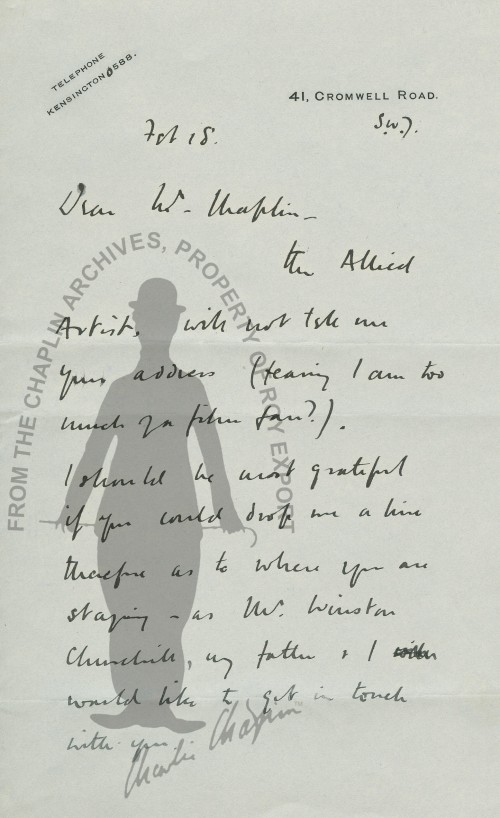 TELEPHONE
KENSINGTON 0588.
41, CROMWELL ROAD.
S.W.7.
Feb 18.
Dear Mr. Chaplin –
the Allied
Artists, will not tell me
your address (fearing I am too
much of a film fan?).
I should be most grateful
if you could drop me a line
therefore as to where you are
staying – as Mr. Winston
Churchill, my father & I
would like to get in touch
with you.
FROM THE CHAPLIN ARCHIVES, PROPERTY OF ROY EXPORT
Charlie Chaplin™